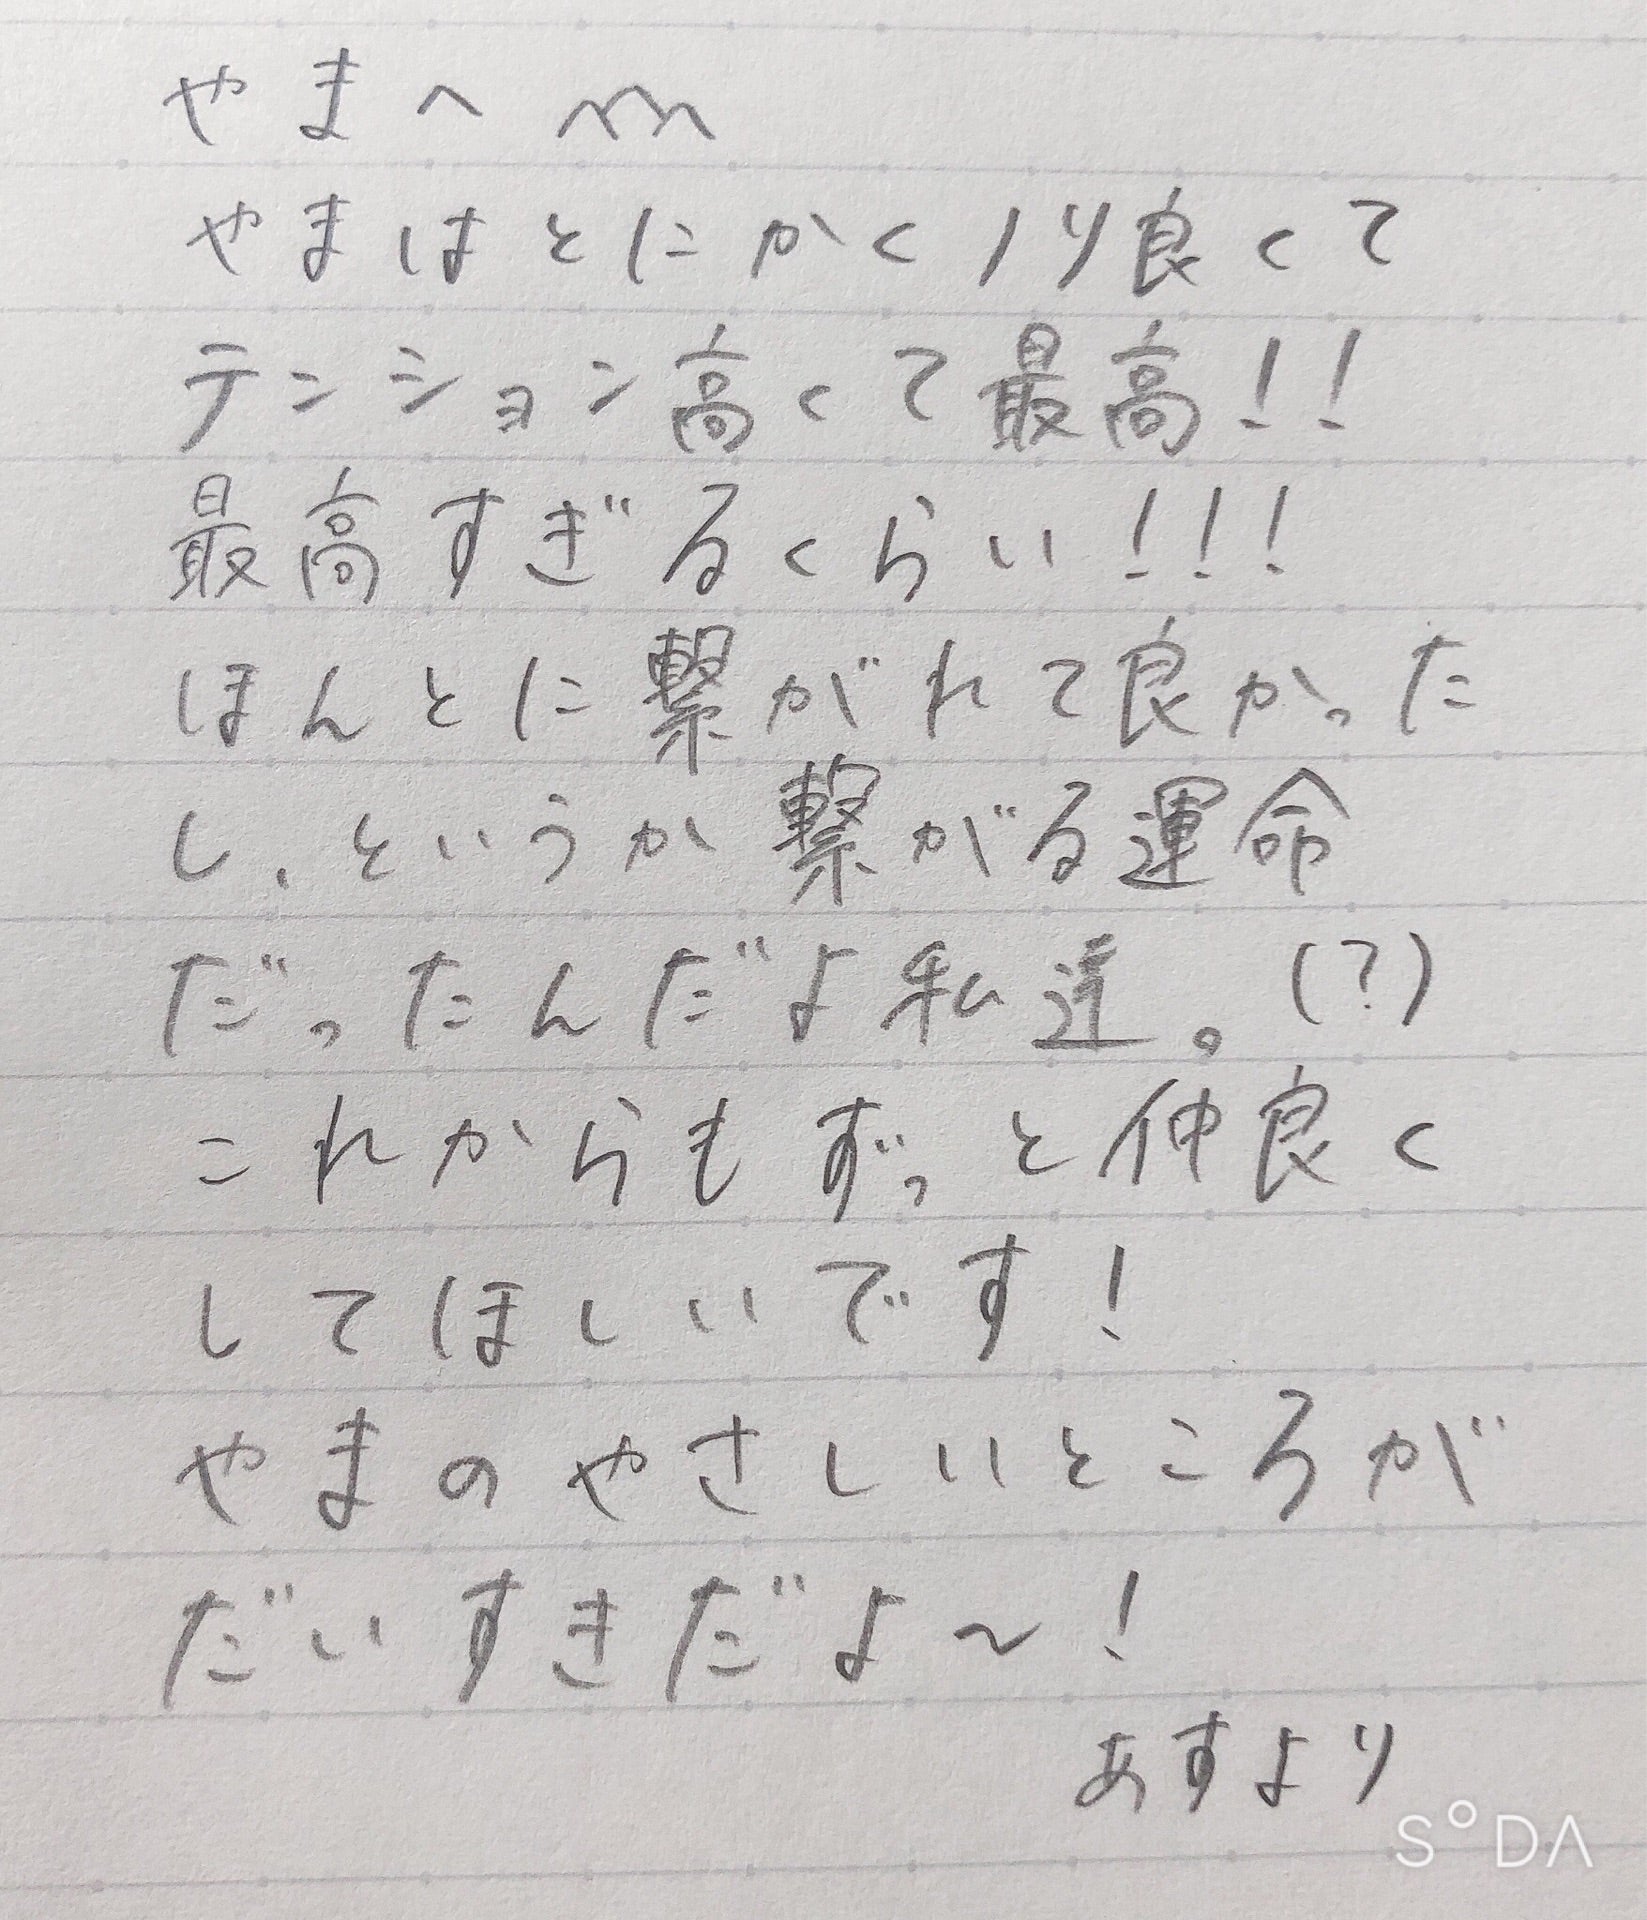 やまへ
やまはとにかくノリ良くて
テンション高くて最高!!
最高すぎるくらい!!!
ほんとに繋がれて良かった
し、というか繋がる運命
だったんだよ私達。(?)
これからもずっと仲良く
してほしいです!
やまのやさしいところが
だいすきだよ〜!
あすより
SODA